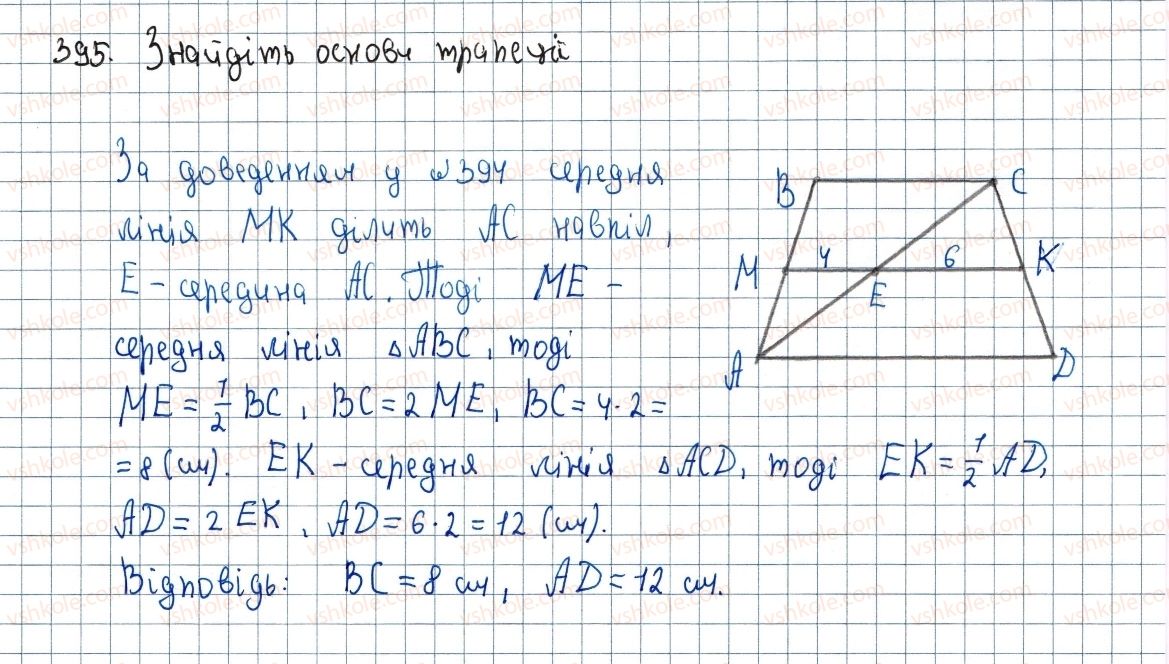 395. Знайдіть основи трапеції
За доведенням у №394 середня
лінія МК ділить АС навпіл,
Е - середина АС. Тоді МЕ -
середня лінія △ABC, тоді
ME = 1/2 BC, BC = 2 ME, BC = 4·2 =
= 8 (см). EK - середня лінія △ACD, тоді EK = 1/2 AD,
AD = 2 EK, AD = 6·2 = 12 (см).
Відповідь: BC = 8 см, AD = 12 см.
B C
M 4 E 6 K
A D
vshkole.com